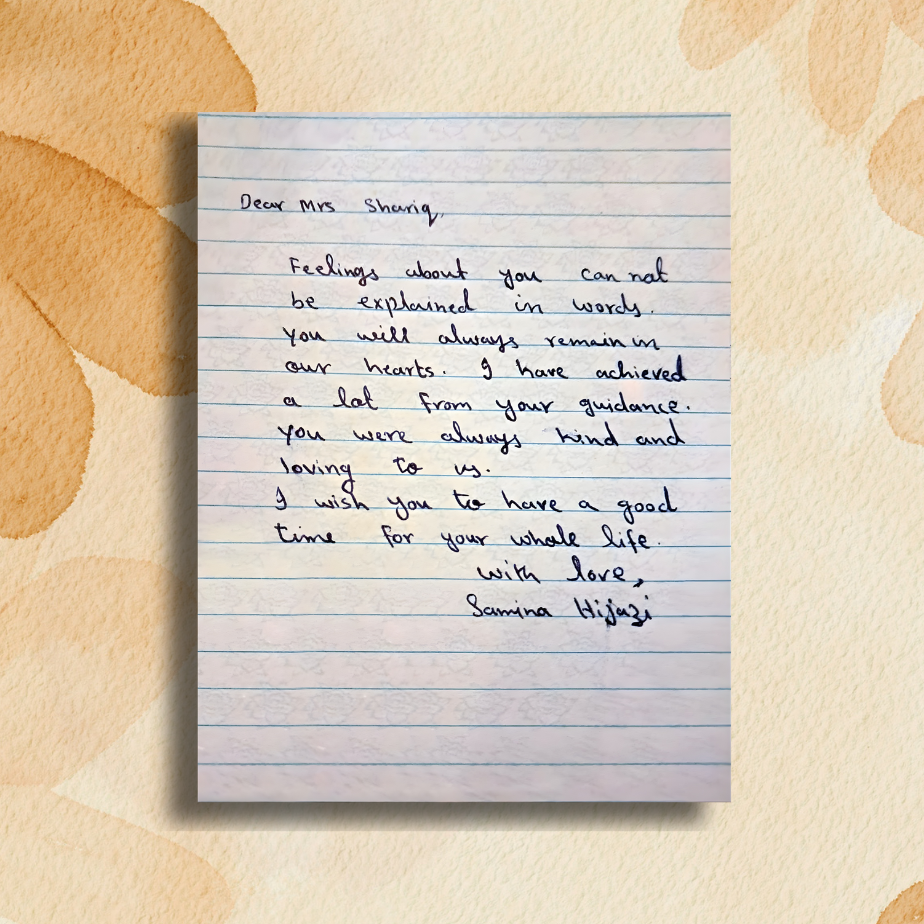 Dear Mrs Shariq,
Feelings about you can not
be explained in words.
You will always remain in
our hearts. I have achieved
a lot from your guidance.
You were always kind and
loving to us.
I wish you to have a good
time for your whole life.
with love,
Samina Hijazi